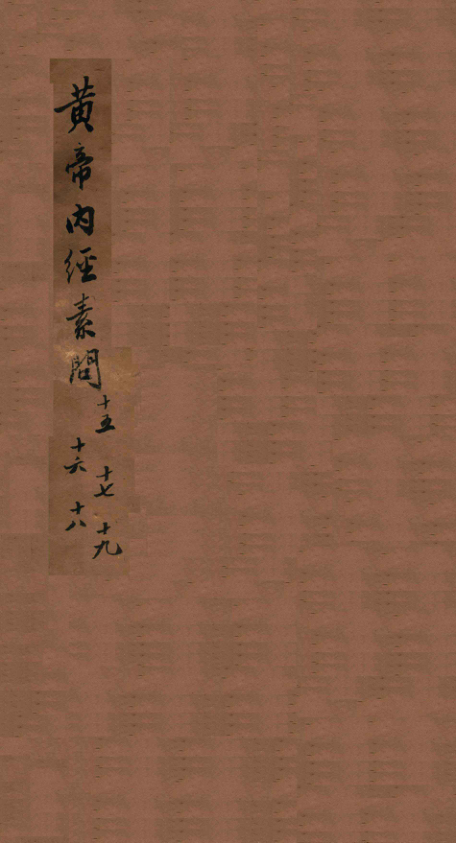 黄帝内經素問
十五
十六
十七
十八
十九